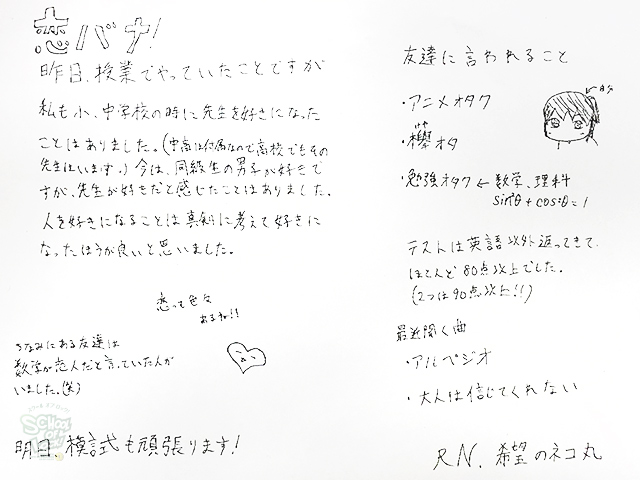 恋バナ!
昨日、授業でやっていたことですが
私も小、中学校の時に先生を好きになった
ことはありました。(中高は付属なので高校でもその
先生はいます。)今は、同級生の男子が好きで
すが、先生が好きだと感じたことはありました。
人を好きになることは真剣に考えて好きに
なったほうが良いと思いました。
恋って色々
あるね!!
ちなみにある友達は
数学が恋人だと言っていた人が
いました。(笑)
明日、模試も頑張ります!
友達に言われること
・アニメオタク
・欅オタ
けやき
・勉強オタク ← 数学、理科
sin²θ + cos²θ = 1
←自分
テストは英語以外返ってきて、
ほとんど80点以上でした。
(2つは90点以上!!)
最近聞く曲
・アルペジオ
・大人は信じてくれない
RN. 希望のネコ丸
SCHOOL OF LOCK!